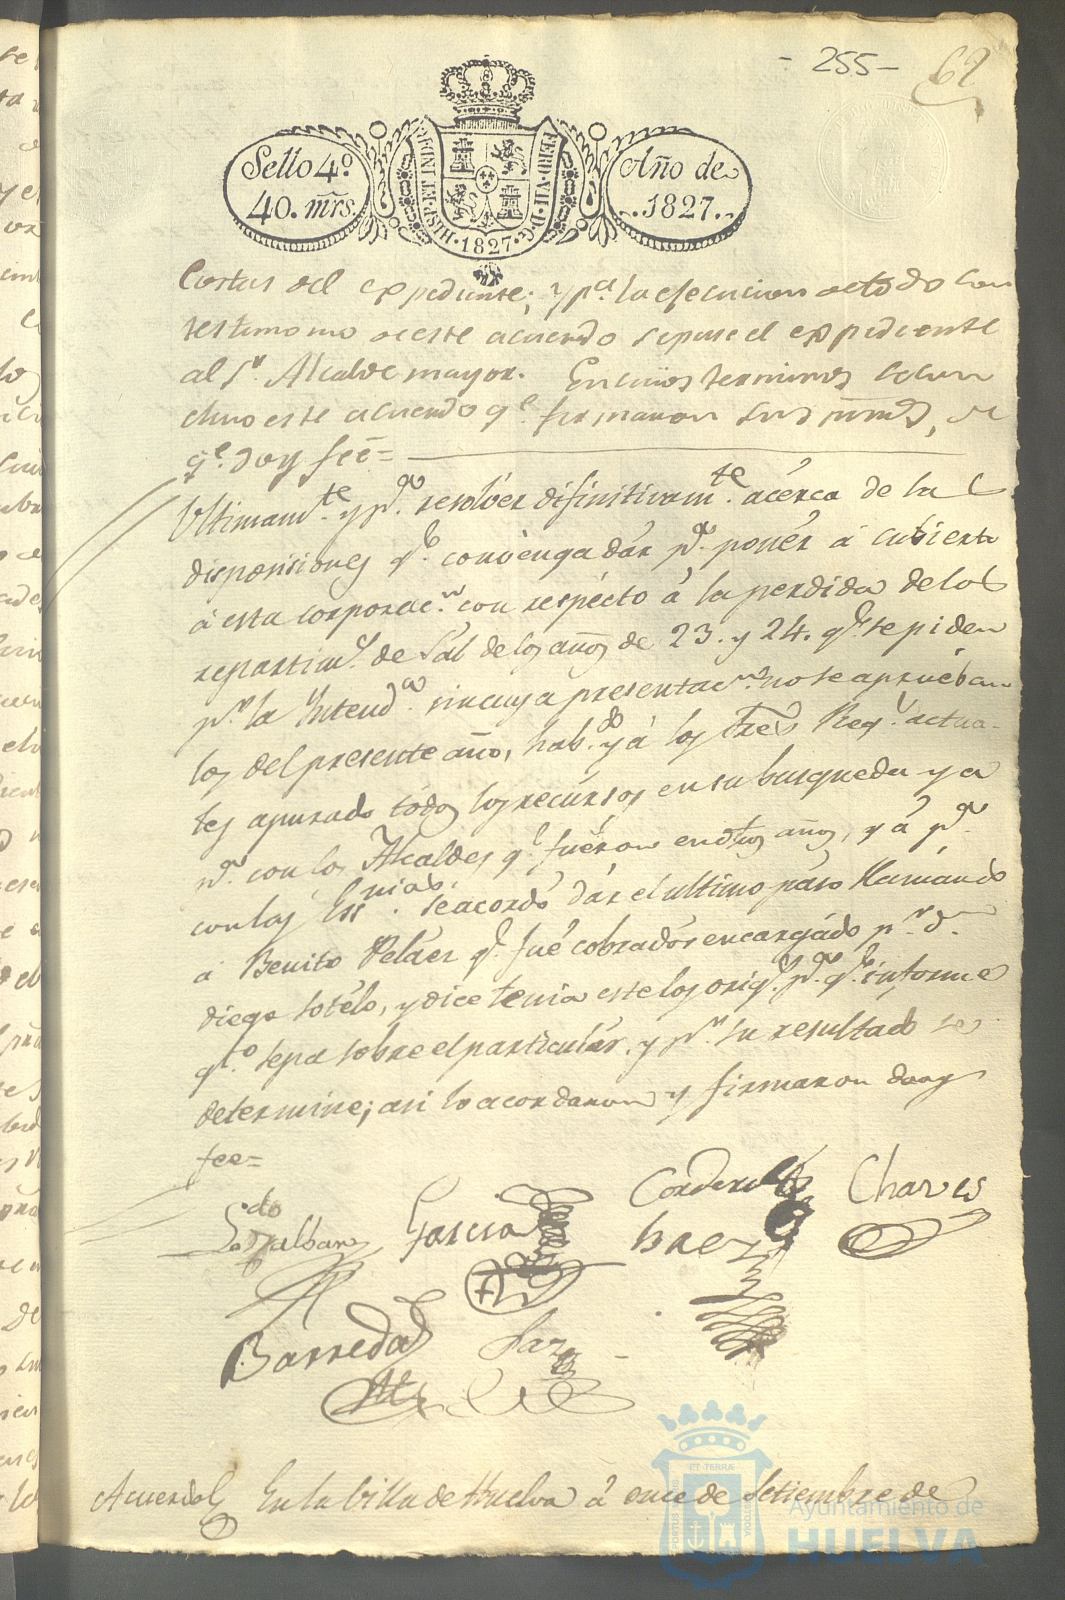 - 255 -
62
Sello 4º
40. mrs.
Año de
1827.
FERD. VII. D. G.
HISP. ET IND. R.
1827
Costas del expediente; y pª. la ejecucion de todo con
testimonio de este acuerdo se pase el expediente
al Sr. Alcalde mayor. En cuios terminos se con
cluio este acuerdo qe. firmaron sus mrds, de
qe. doy feé=
Ultimamte. y pª. resolvér difinitivamte. acérca de las
disposiciones qe. convenga dár pª. ponér á cubierto
á esta corporacn. con respécto á la perdida de los
repartimtos. de Sal de los años de 23. y 24. qe. se piden
pr. la Yntendª. sin cuya presentacn. no se apruéban
los del presente año, habdo. yá los Sres. Regs. actua-
les apurado tódos los recúrsos en su busqueda ya
pr. con los Alcaldes qe. fuéron en dhos años, yá pr.
con las Essnias. se acordó dár el ultimo páso llamando
á Benito Peláez qe. fué cobradór encargádo pr. Dn.
Diego Sotélo, y dice tenia este los origs. pª. qe. informe
qto. sepa sobre el particulár, y pr. su resultado se
determine; asi lo acordaron y firmaron doy
fee=
Ldo. Galban
Garcia
Cordero
Chaves
Baez
Barreda
Saz
Acuerdo
En la Villa de Huelva á once de Setiembre de
ET TERRÆ
PORTUS
CUSTODIA
Ayuntamiento de
HUELVA